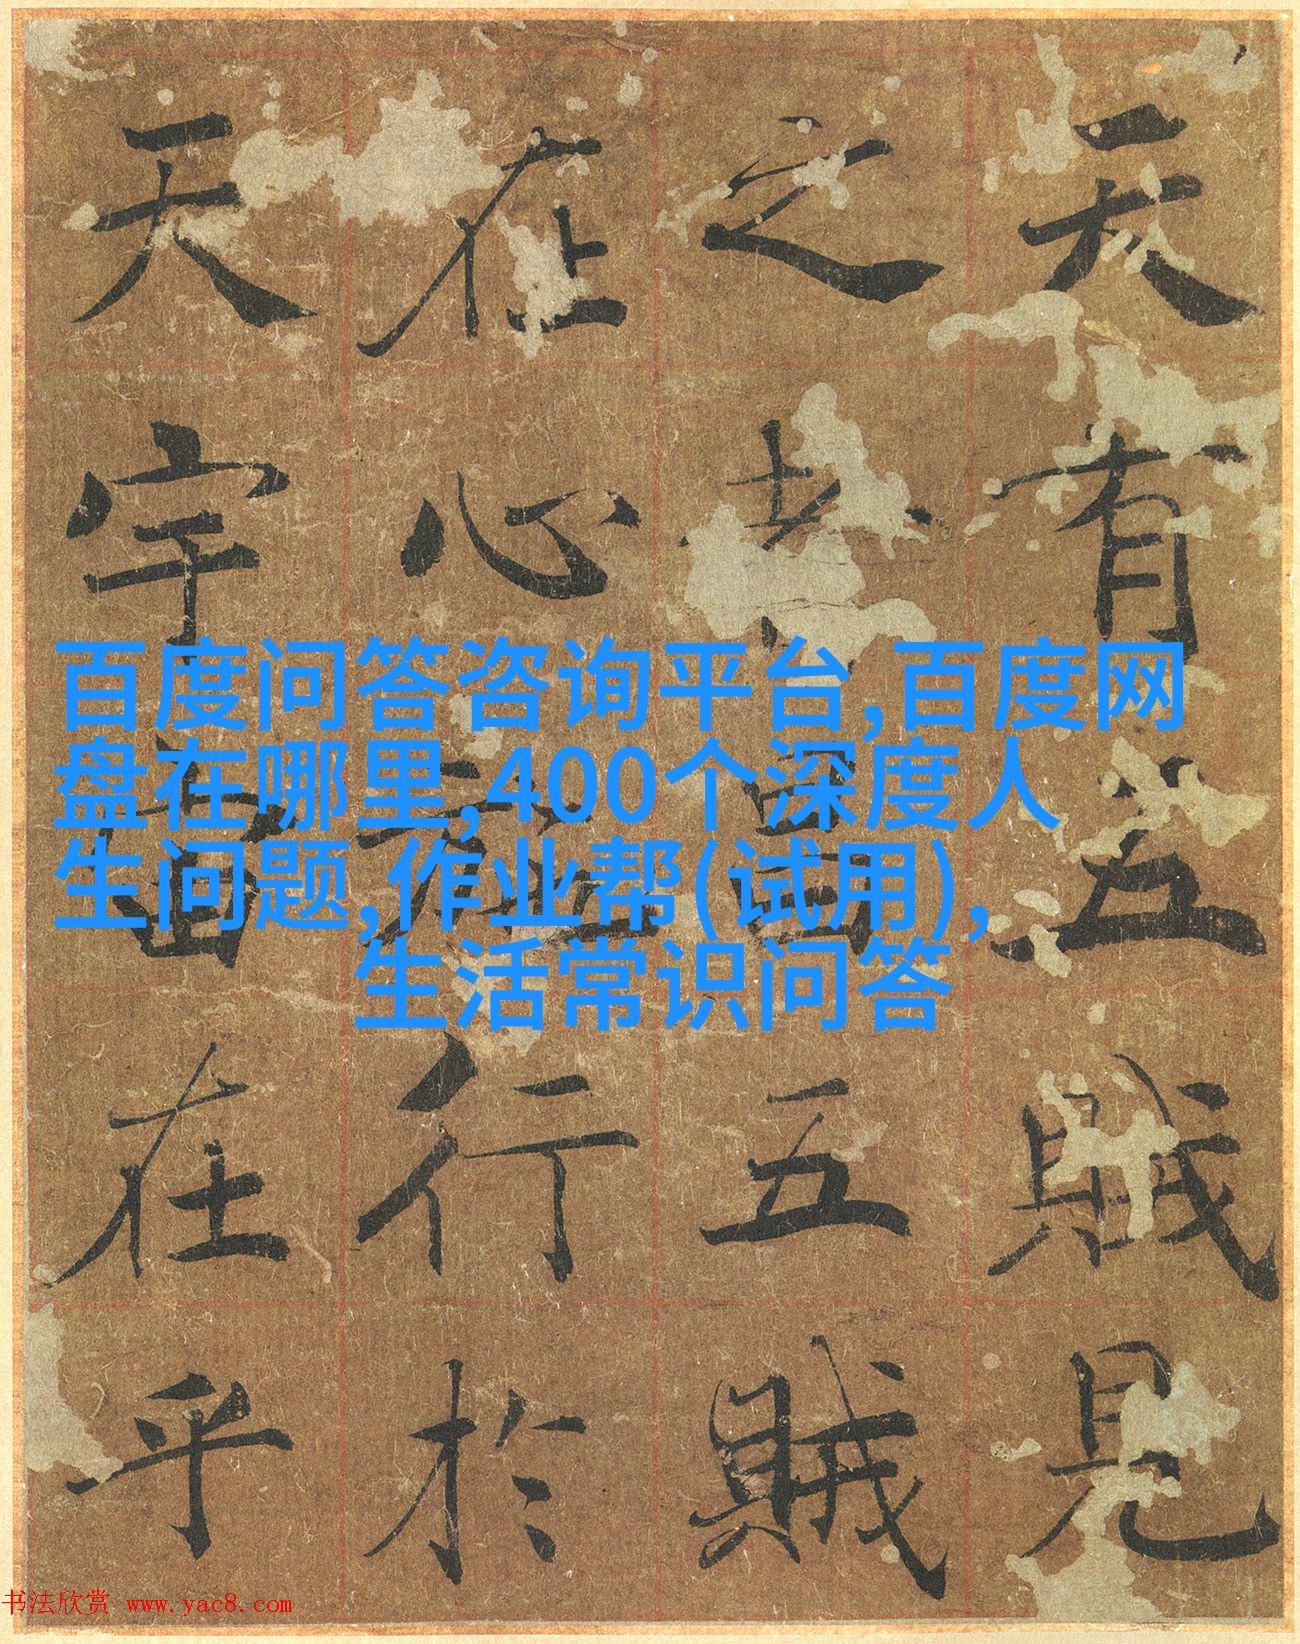 百度问答咨询平台,百度网
盘在哪里,400个深度人
生问题,作业帮(试用),
生活常识问答
天有五賊見
之者昌五賊
在心施行於
天宇宙在乎
书法欣赏 www.yac8.com